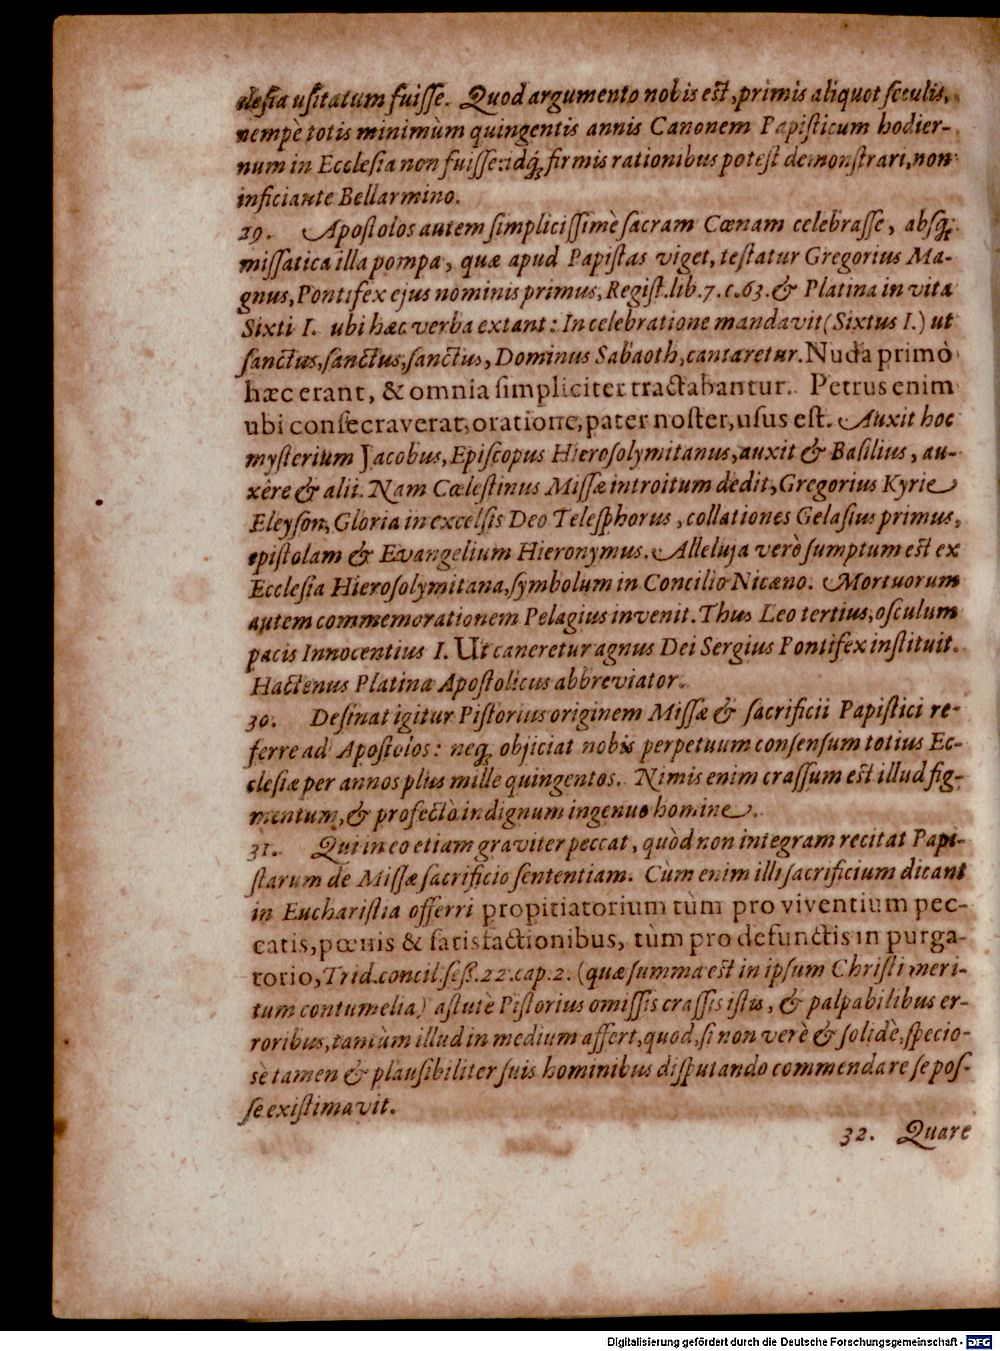 clesia usitatum fuisse. Quod argumento nobis est, primis aliquot seculis,
nempè totis minimùm quingentis annis Canonem Papisticum hodier-
num in Ecclesia non fuisse: idq́; firmis rationibus potest demonstrari, non
inficiante Bellarmino.
29. Apostolos autem simplicissimè sacram Cœnam celebrasse, absq́;
missatica illa pompa, quæ apud Papistas viget, testatur Gregorius Ma-
gnus, Pontifex ejus nominis primus, Regist. lib. 7. c. 63. & Platina in vita
Sixti I. ubi hæc verba extant: In celebratione mandavit (Sixtus I.) ut
sanctus, sanctus, sanctus, Dominus Sabaoth, cantaretur. Nuda primò
hæc erant, & omnia simpliciter tractabantur. Petrus enim
ubi consecraverat, oratione, pater noster, usus est. Auxit hoc
mysterium Jacobus, Episcopus Hierosolymitanus, auxit & Basilius, au-
xêre & alii. Nam Cœlestinus Missæ introitum dedit, Gregorius Kyrie
Eleyson, Gloria in excelsis Deo Telesphorus, collationes Gelasius primus,
epistolam & Evangelium Hieronymus. Alleluja verò sumptum est ex
Ecclesia Hierosolymitana, symbolum in Concilio Nicæno. Mortuorum
autem commemorationem Pelagius invenit. Thus Leo tertius, osculum
pacis Innocentius I. Ut caneretur agnus Dei Sergius Pontifex instituit.
Hactenus Platina Apostolicus abbreviator.
30. Desinat igitur Pistorius originem Missæ & sacrificii Papistici re-
ferre ad Apostolos: neq; objiciat nobis perpetuum consensum totius Ec-
clesiæ per annos plus mille quingentos. Nimis enim crassum est illud fig-
mentum, & profectò indignum ingenuo homine.
31. Qui in eo etiam graviter peccat, quòd non integram recitat Papi-
starum de Missæ sacrificio sententiam. Cùm enim illi sacrificium dicant
in Eucharistia offerri propitiatorium tùm pro viventium pec-
catis, pœnis & satisfactionibus, tùm pro defunctis in purga-
torio, Trid. concil. seß. 22. cap. 2. (quæ summa est in ipsum Christi meri-
tum contumelia) astutè Pistorius omissis crassis istis, & palpabilibus er-
roribus, tantùm illud in medium affert, quod, si non verè & solidè, specio-
sè tamen & plausibiliter suis hominibus disputando commendare se pos-
se existimavit.
32. Quare
Digitalisierung gefördert durch die Deutsche Forschungsgemeinschaft - DFG